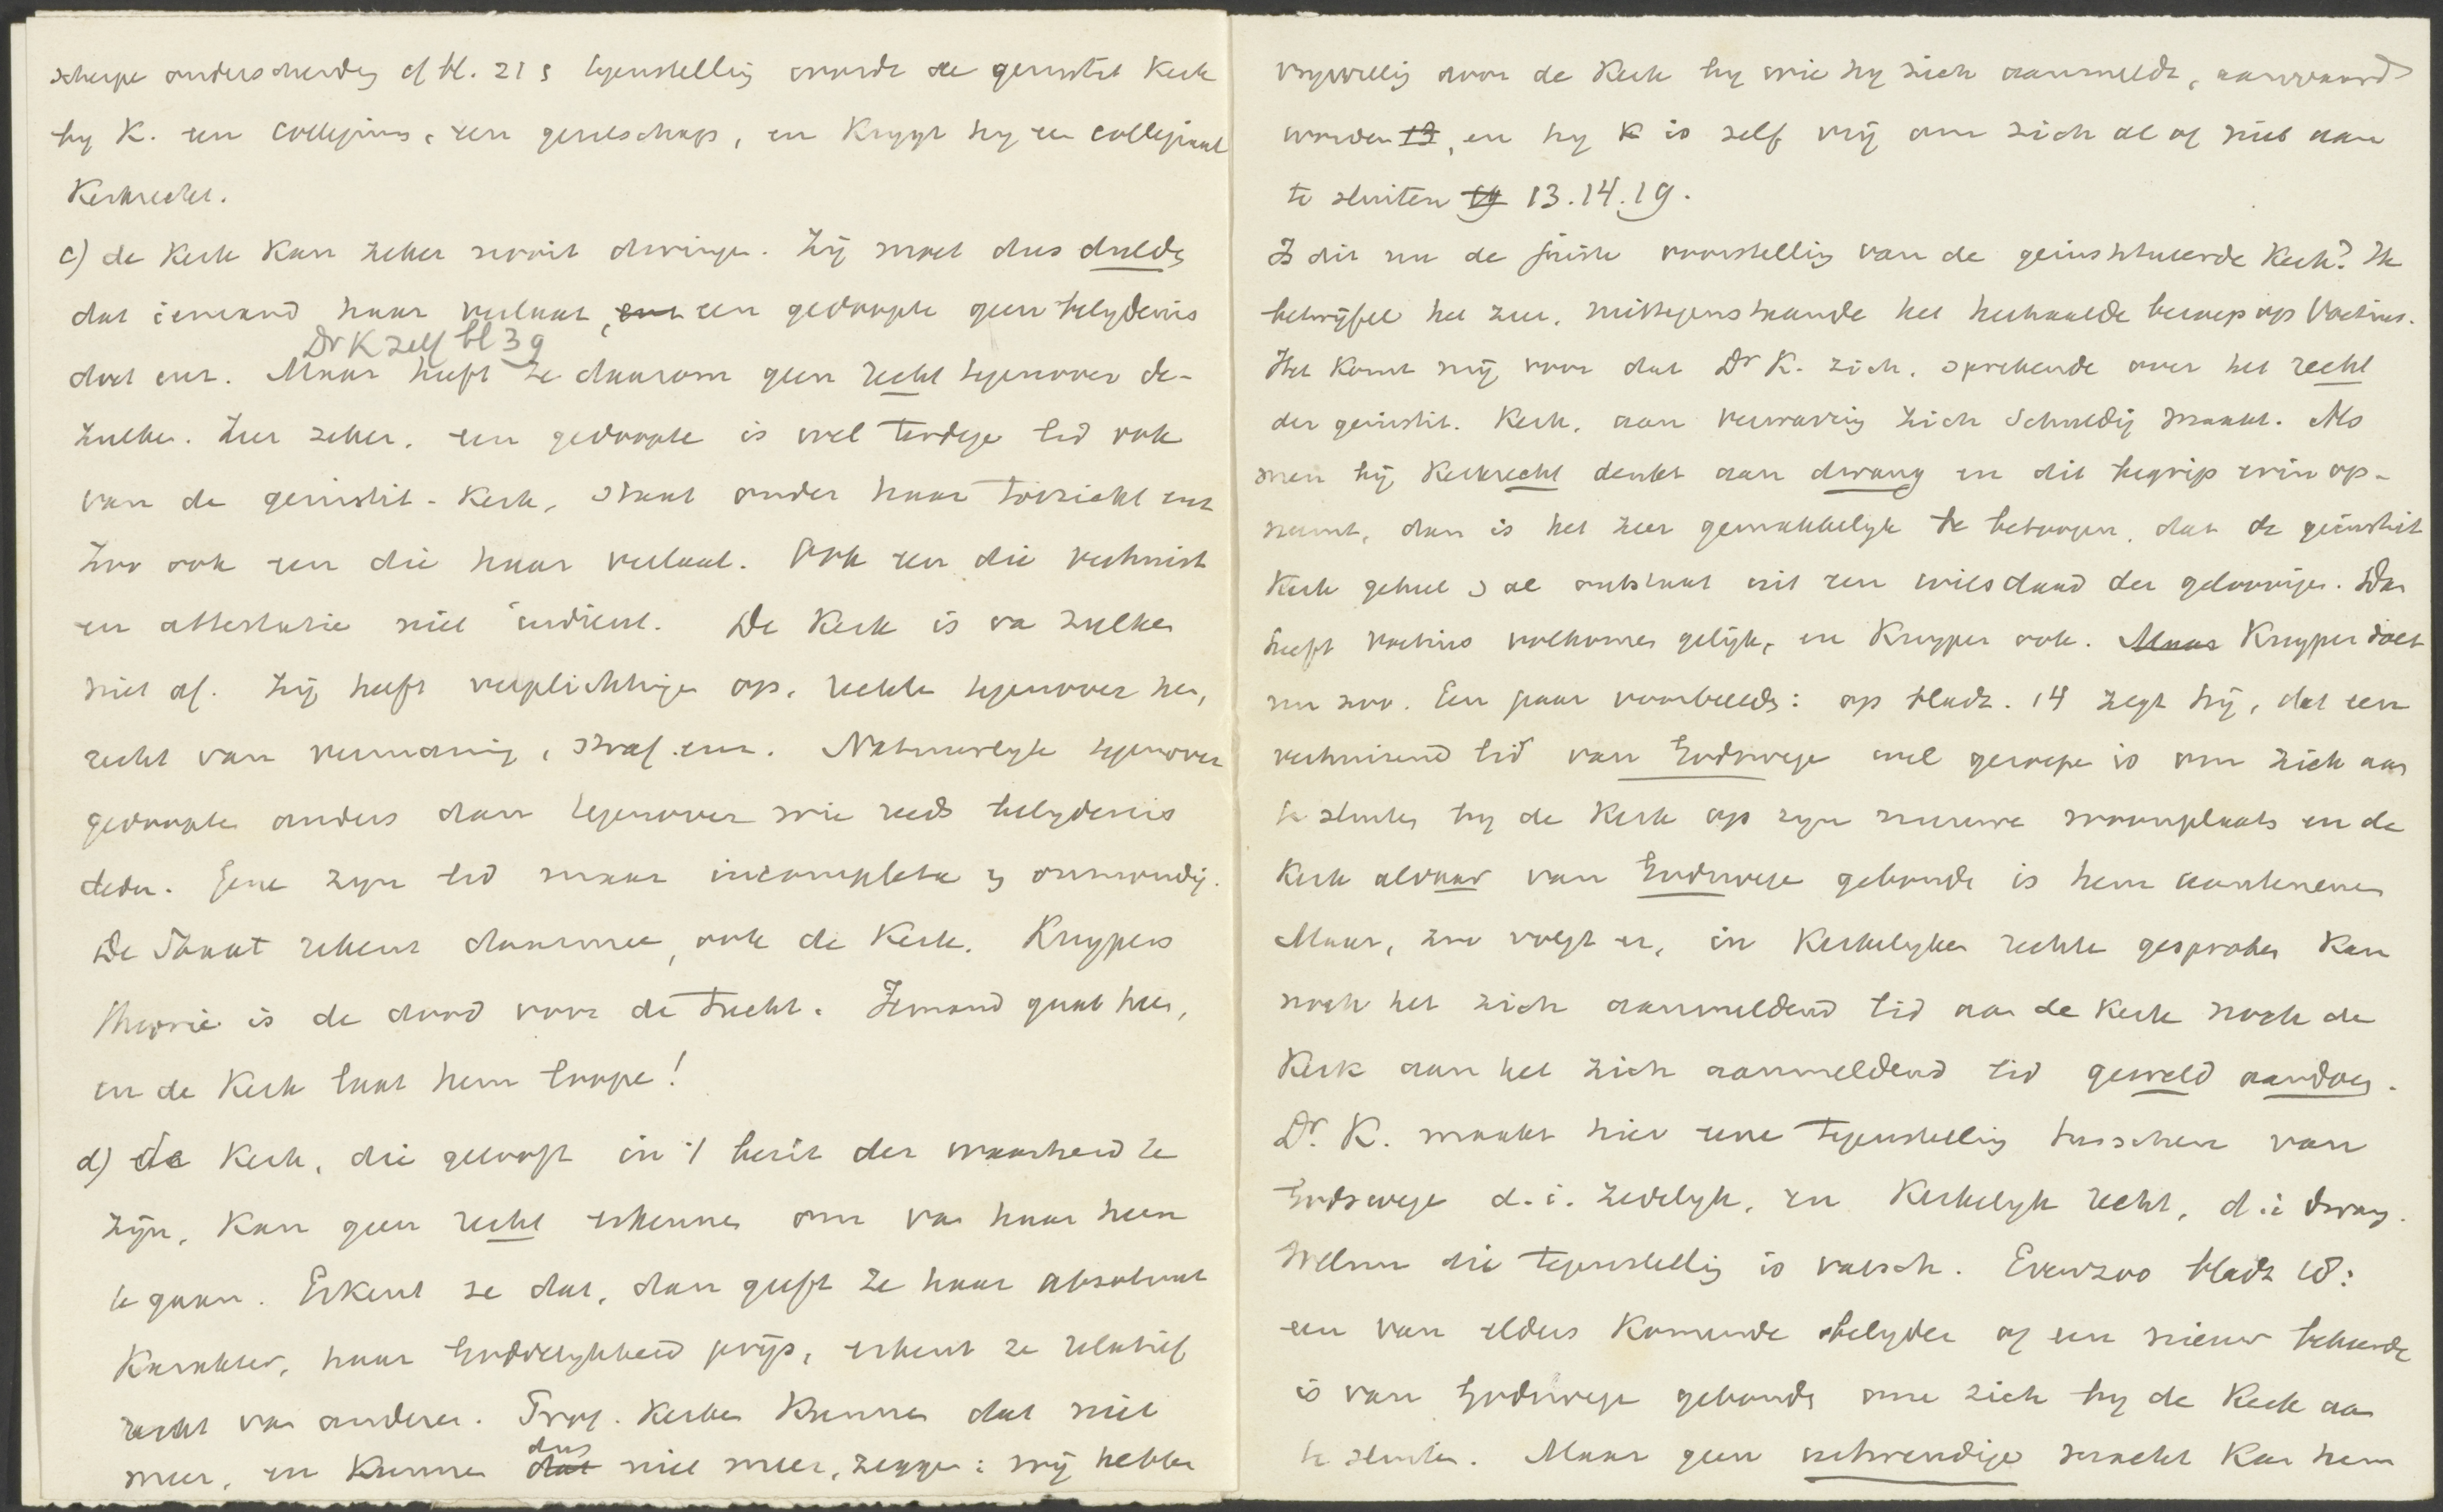 scherpe onderscheiding cf bl. 21 s tegenstelling wordt de geinstit Kerk
by K. een collegium, een genootschap, en krygt hy een collegiaal
Kerkrecht.
c) de Kerk kan zeker nooit dwingen. Zij moet dus dulden
dat iemand haar verlaat, een gedoopte geen belydenis
Dr K zelf bl 39
doet enz. Maar heeft ze daarom geen recht tegenover de-
zulken. Zeer zeker. een gedoopte is wel terdege lid ook
van de geinstit. Kerk, staat onder haar toezicht enz
Zoo ook een die haar verlaat. Ook een die verhuist
en attestatie niet indient. De Kerk is va zulken
niet af. Zij heeft verplichtingen op, rechten tegenover hen,
recht van vermaning, straf enz. Natuurlyk tegenover
gedoopten anders dan tegenover wie reeds belydenis
deden. Gene zyn lid maar incompleta en onmondig.
De Staat rekent daarmee, ook de Kerk. Kuypers
theorie is de dood voor de tucht. Iemand gaat heen,
en de Kerk laat hem loopen!
d) de Kerk, die gelooft in 't bezit der waarheid te
zijn, kan geen recht erkennen om van haar heen
te gaan. Erkent ze dat, dan geeft ze haar absoluut
karakter, haar Goddelykheid prijs, erkent ze relatief
recht van anderen. Prot. Kerken kunnen dat niet
meer, en kunnen dus niet meer, zeggen: wij hebben
vrywillig door de Kerk by wie hy zich aanmeldt, aanvaard
worden 13, en hy K is zelf vrij om zich al of niet aan
te sluiten 19 13.14.19.
Is dit nu de juiste voorstelling van de geinstitueerde Kerk? Ik
betwijfel het zeer, niettegenstaande het herhaalde beroep op Voetius.
Het komt mij voor dat Dr K. zich, sprekende over het recht
der geinstit. Kerk, aan verwarring zich schuldig maakt. Als
men bij Kerkrecht denkt aan dwang en dit begrip erin op-
neemt, dan is het zeer gemakkelyk te betoogen, dat de geinstit
Kerk geheel s al ontstaat uit een wilsdaad der geloovigen. Dan
heeft Voetius volkomen gelijk, en Kuyper ook. Maar Kuyper doet
nu zoo. Een paar voorbeelden: op bladz. 14 zegt hij, dat een
verhuizend lid van Godswege wel geroepen is om zich aan
te sluiten by de Kerk op zyn nieuwe woonplaats en de
Kerk aldaar van Godswege gebonden is hem aantenemen
Maar, zoo volgt er, in Kerkelyken rechte gesproken kan
noch het zich aanmeldend lid aan de Kerk noch de
Kerk aan het zich aanmeldend lid geweld aandoen.
Dr. K. maakt hier eene tegenstelling tusschen van
Godswege d.i. zedelyk, en Kerkelyk recht, d.i. dwang.
Welnu die tegenstelling is valsch. Evenzoo bladz 18:
een van elders komende belyder of een nieuw bekeerde
is van Godswege gebonden om zich by de Kerk aan
te sluiten. Maar geen uitwendige macht kan hem